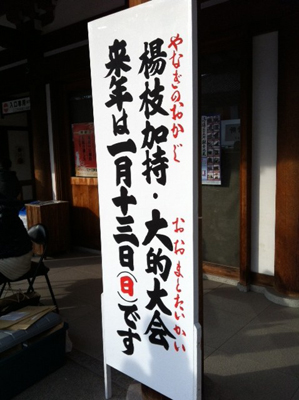 やなぎのおかじ おおまとたいかい
楊枝加持・大的大会
来年は一月十三日(日)です